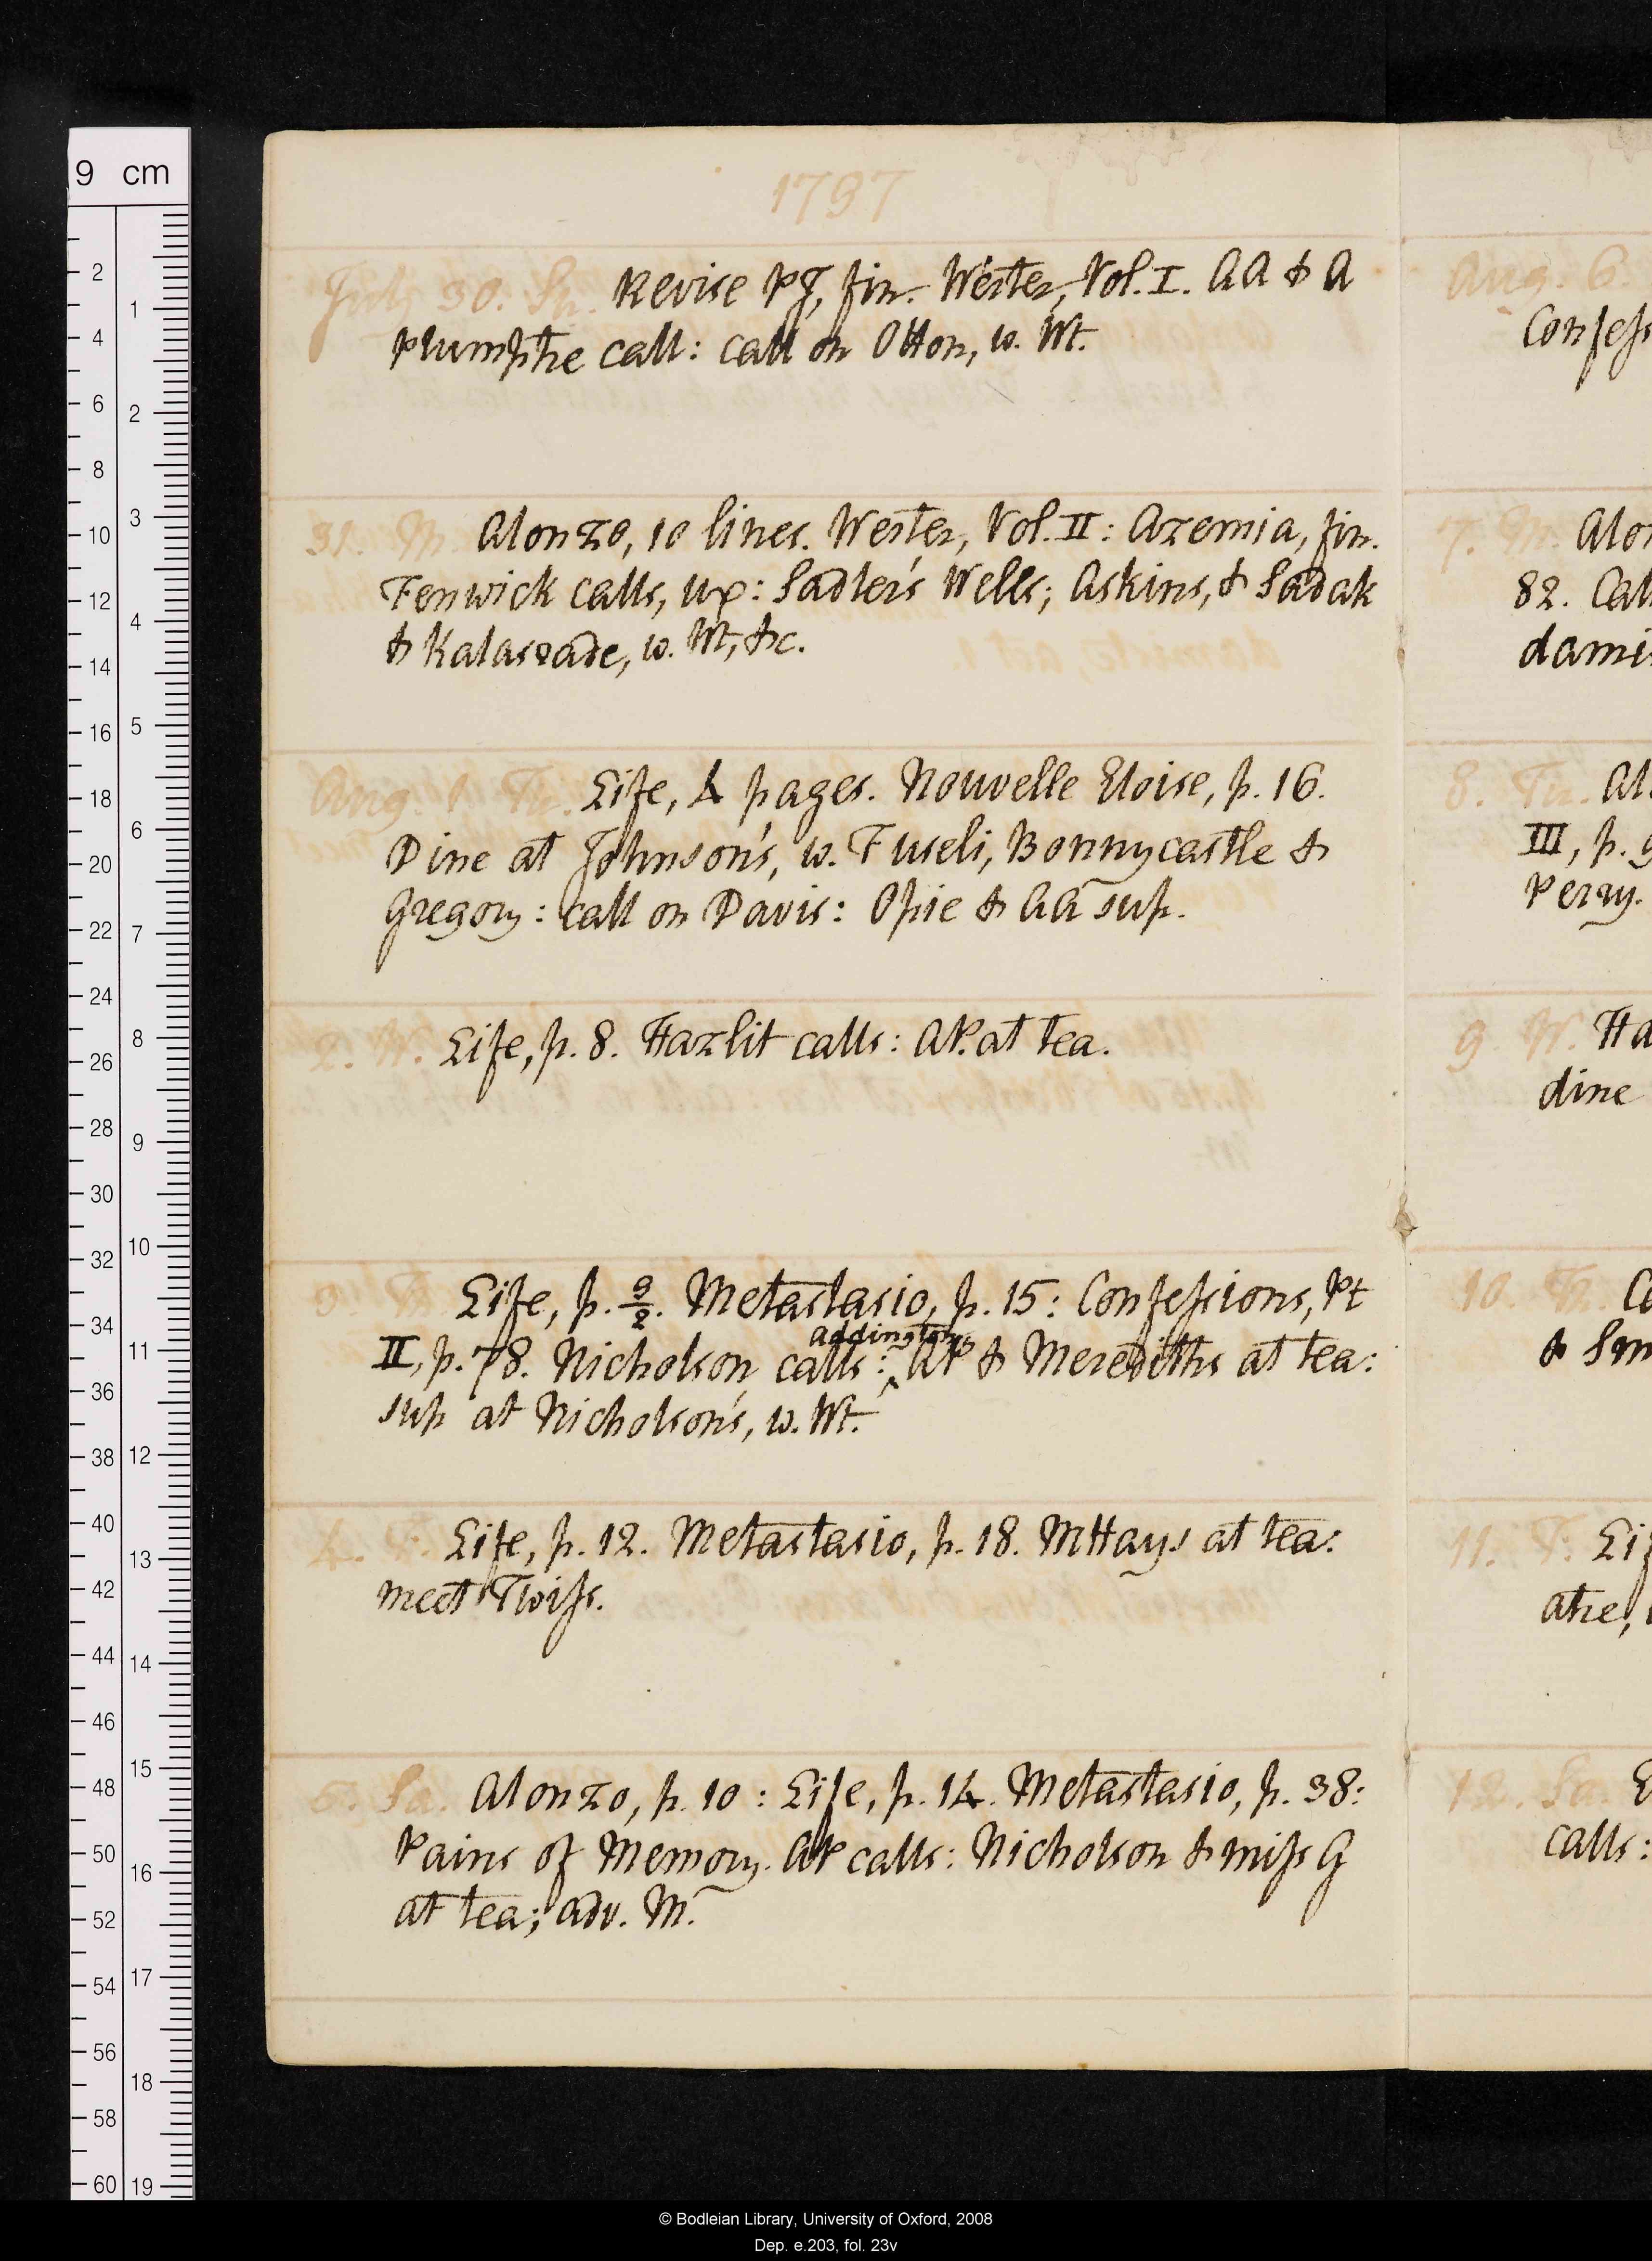 1797
July 30. Su. Revise PJ, fin. Werter, Vol. I. AA & A
Plumptre call: call on Otton, w. Wt.
31. M. Alonzo, 10 lines. Werter, Vol. II: Azemia, fin.
Fenwick calls, ux: Sadler's Wells; Askins, & Sadak
& Kalasrade, w. Wt, &c.
Aug. 1. Tu. Life, 4 pages. Nouvelle Eloise, p. 16.
Dine at Johnson's, w. Fuseli, Bonnycastle &
Gregory: call on Davis: Opie & AA sup.
2. W. Life, p. 8. Hazlit calls: AP. at tea.
3. Th. Life, p. 9/2. Metastasio, p. 15: Confessions, Pt
Addingtons
II, p. 78. Nicholson calls: ‸ AP & Merediths at tea:
sup at Nicholson's, w. Wt.
4. F. Life, p. 12. Metastasio, p. 18. MHays at tea:
meet Twiss.
5. Sa. Alonzo, p. 10: Life, p. 14. Metastasio, p. 38:
Pains of Memory. AP calls: Nicholson & miss G
at tea; adv. M.
Aug. 6.
Confess
7. M. Alon
82. Call
dami
8. Tu. Al
III, p. 9
Perry.
9 W. Ha
dine
10. Th. Ca
& Sm
11. F. Lif
atre,
12. Sa.
calls:
9 cm
2
4
6
8
10
12
14
16
18
20
22
24
26
28
30
32
34
36
38
40
42
44
46
48
50
52
54
56
58
60
1
2
3
4
5
6
7
8
9
10
11
12
13
14
15
16
17
18
19
© Bodleian Library, University of Oxford, 2008
Dep. e.203, fol. 23v